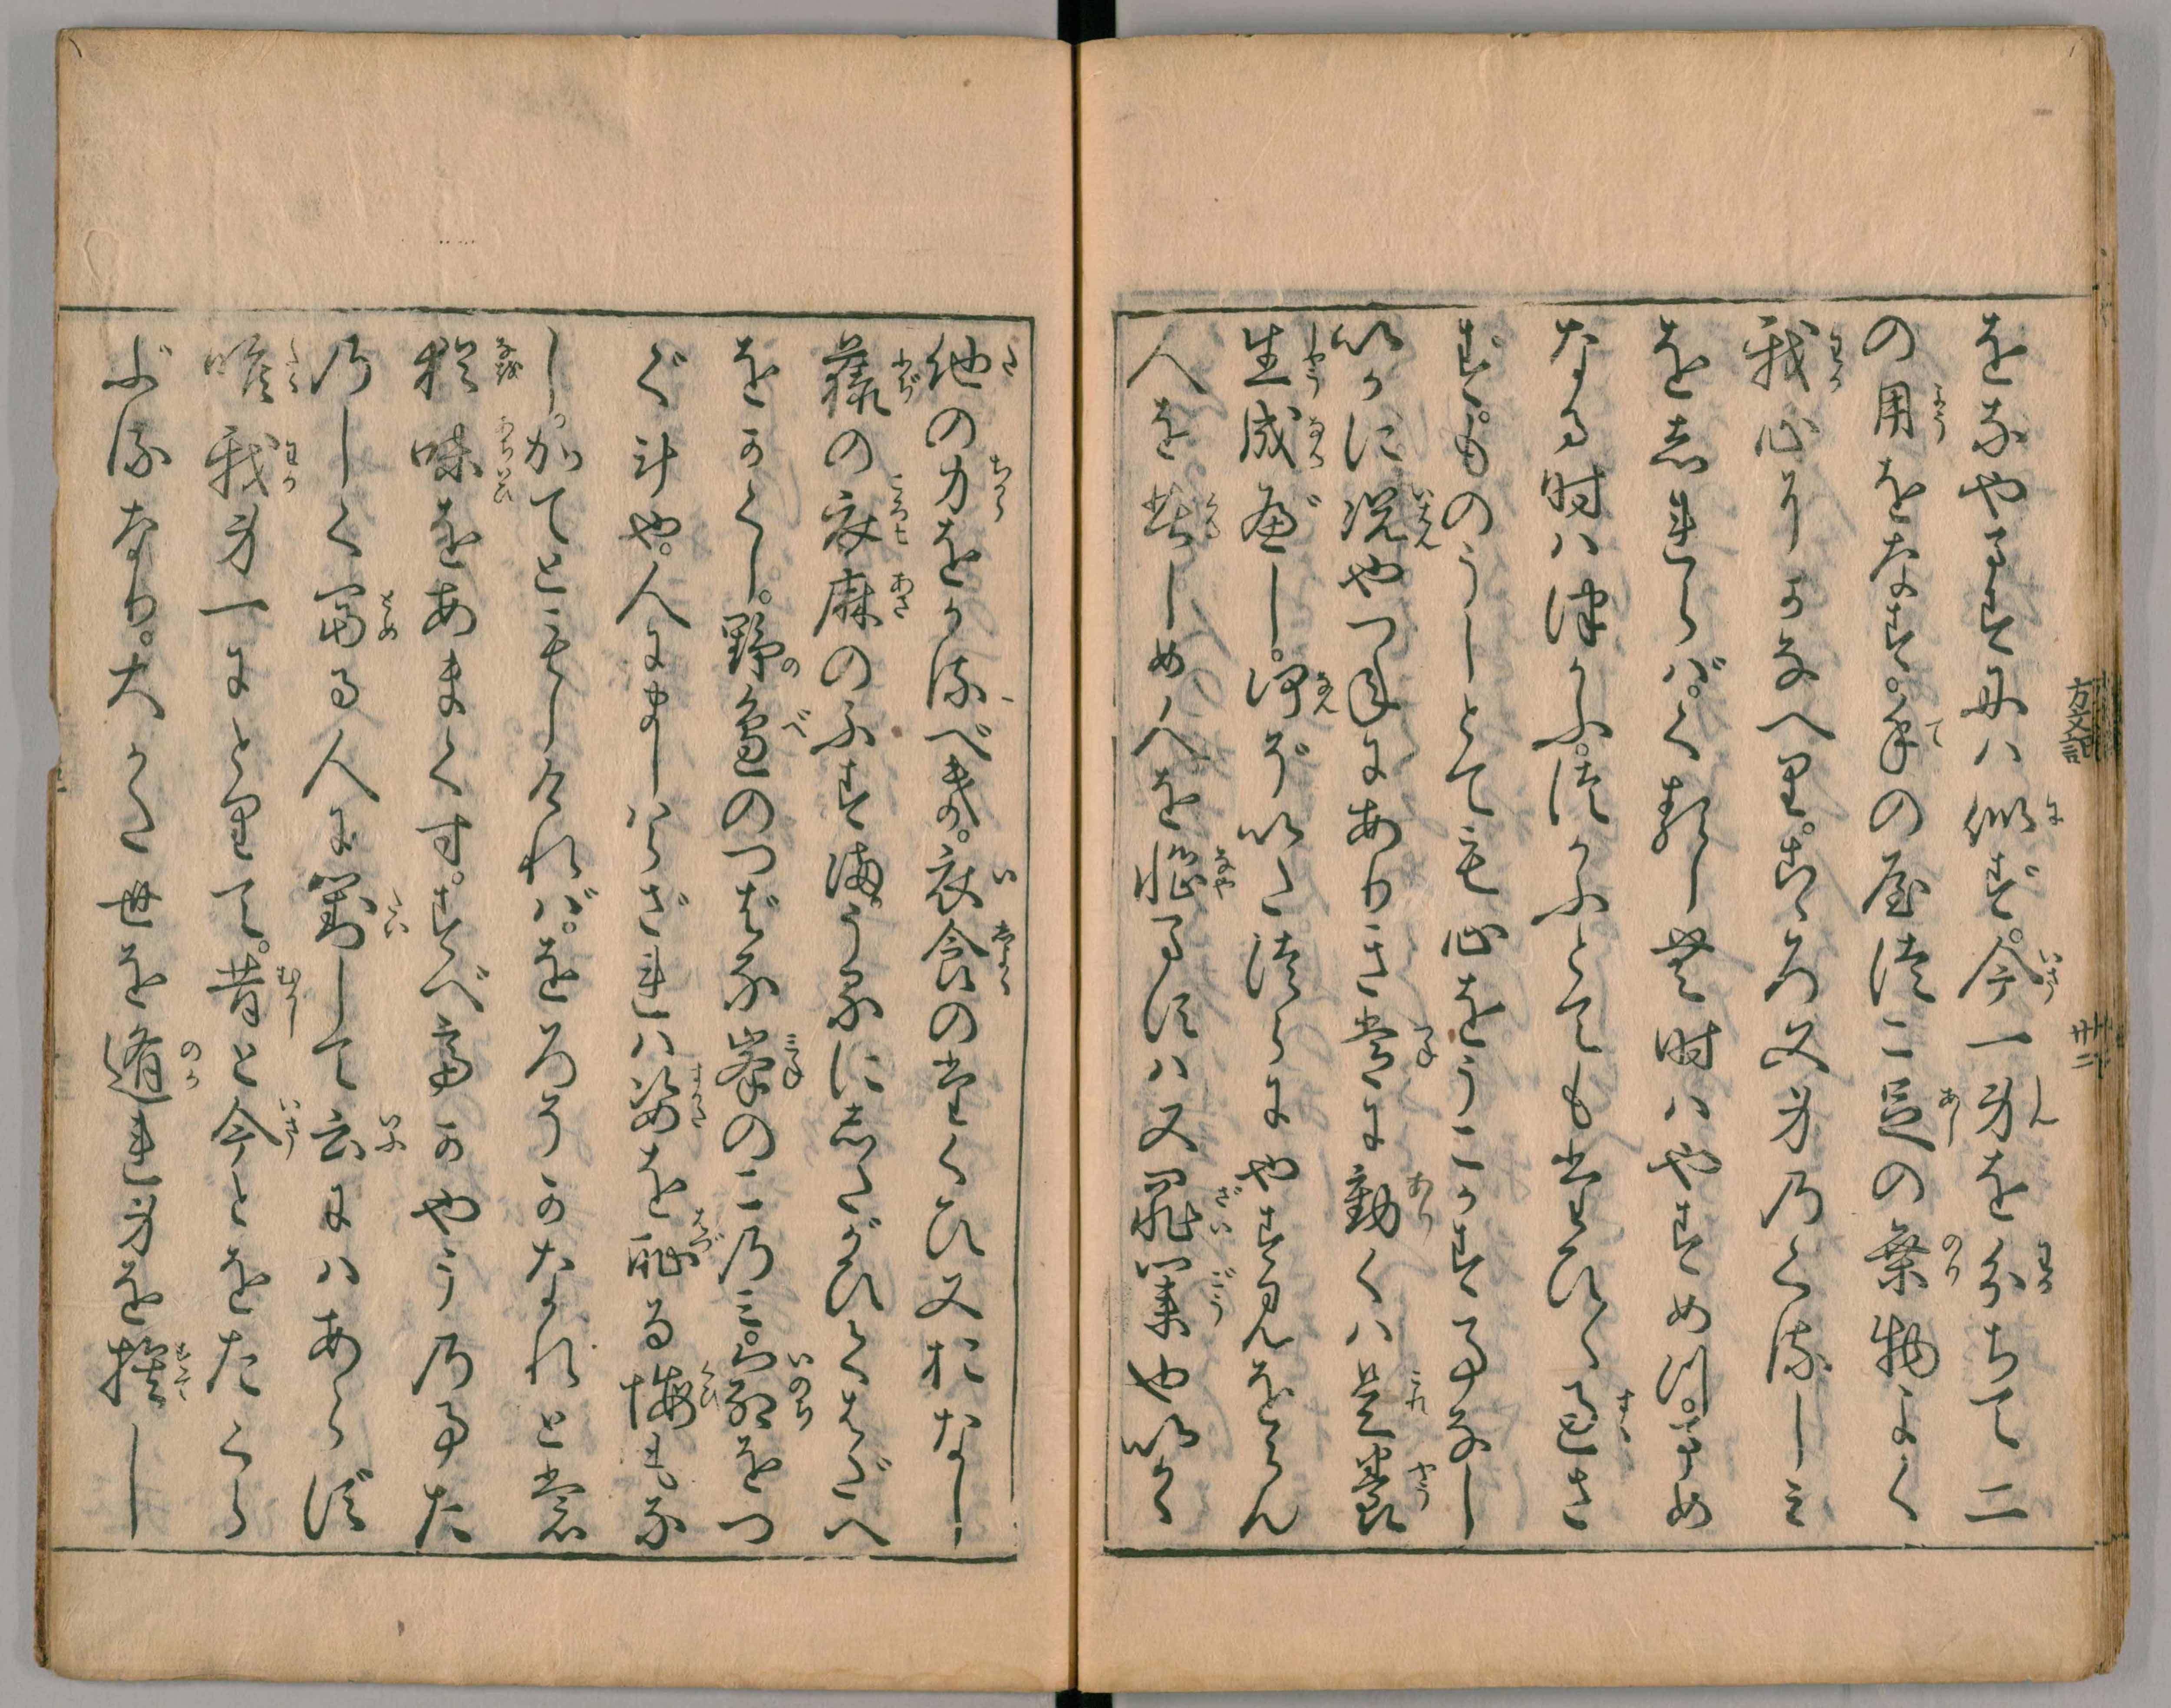 をなやますには似ず。今一身をわかちて二
の用をなす。手の屋つこ足の乗物よく
我心にかなへり。こゝろ又身のくるしミ
をしれらバ。くるしむ時ハやすめつ。まめ
なる時ハつかふ。つかふとてもたひ〳〵過さ
ず。ものうしとても心をうこかす事なし
いかに況やつねにありき常に動くハ是養
生成べし。何ぞいたつらにやすみをらん
人を苦しめ人を悩ますハ又罪業也いかゝ
方丈記
卅二
他の力をかるべき。衣食のたくひ又おなし
藤の衣麻のふすまうるにしたがひてはだへ
をかくし。野邊のつばな峯のこのミ。命をつ
ぐ計也。人にまじハらざれハ姿を恥る悔もな
し。かてともしけれバ。をろそかなれとも
猶味をあまくす。すべてかやうの事た
のしく冨る人に對して云にハあらず
唯我身一にとりて。昔と今とをたくら
ぶるなり。大かた世を遁れ身を捨し